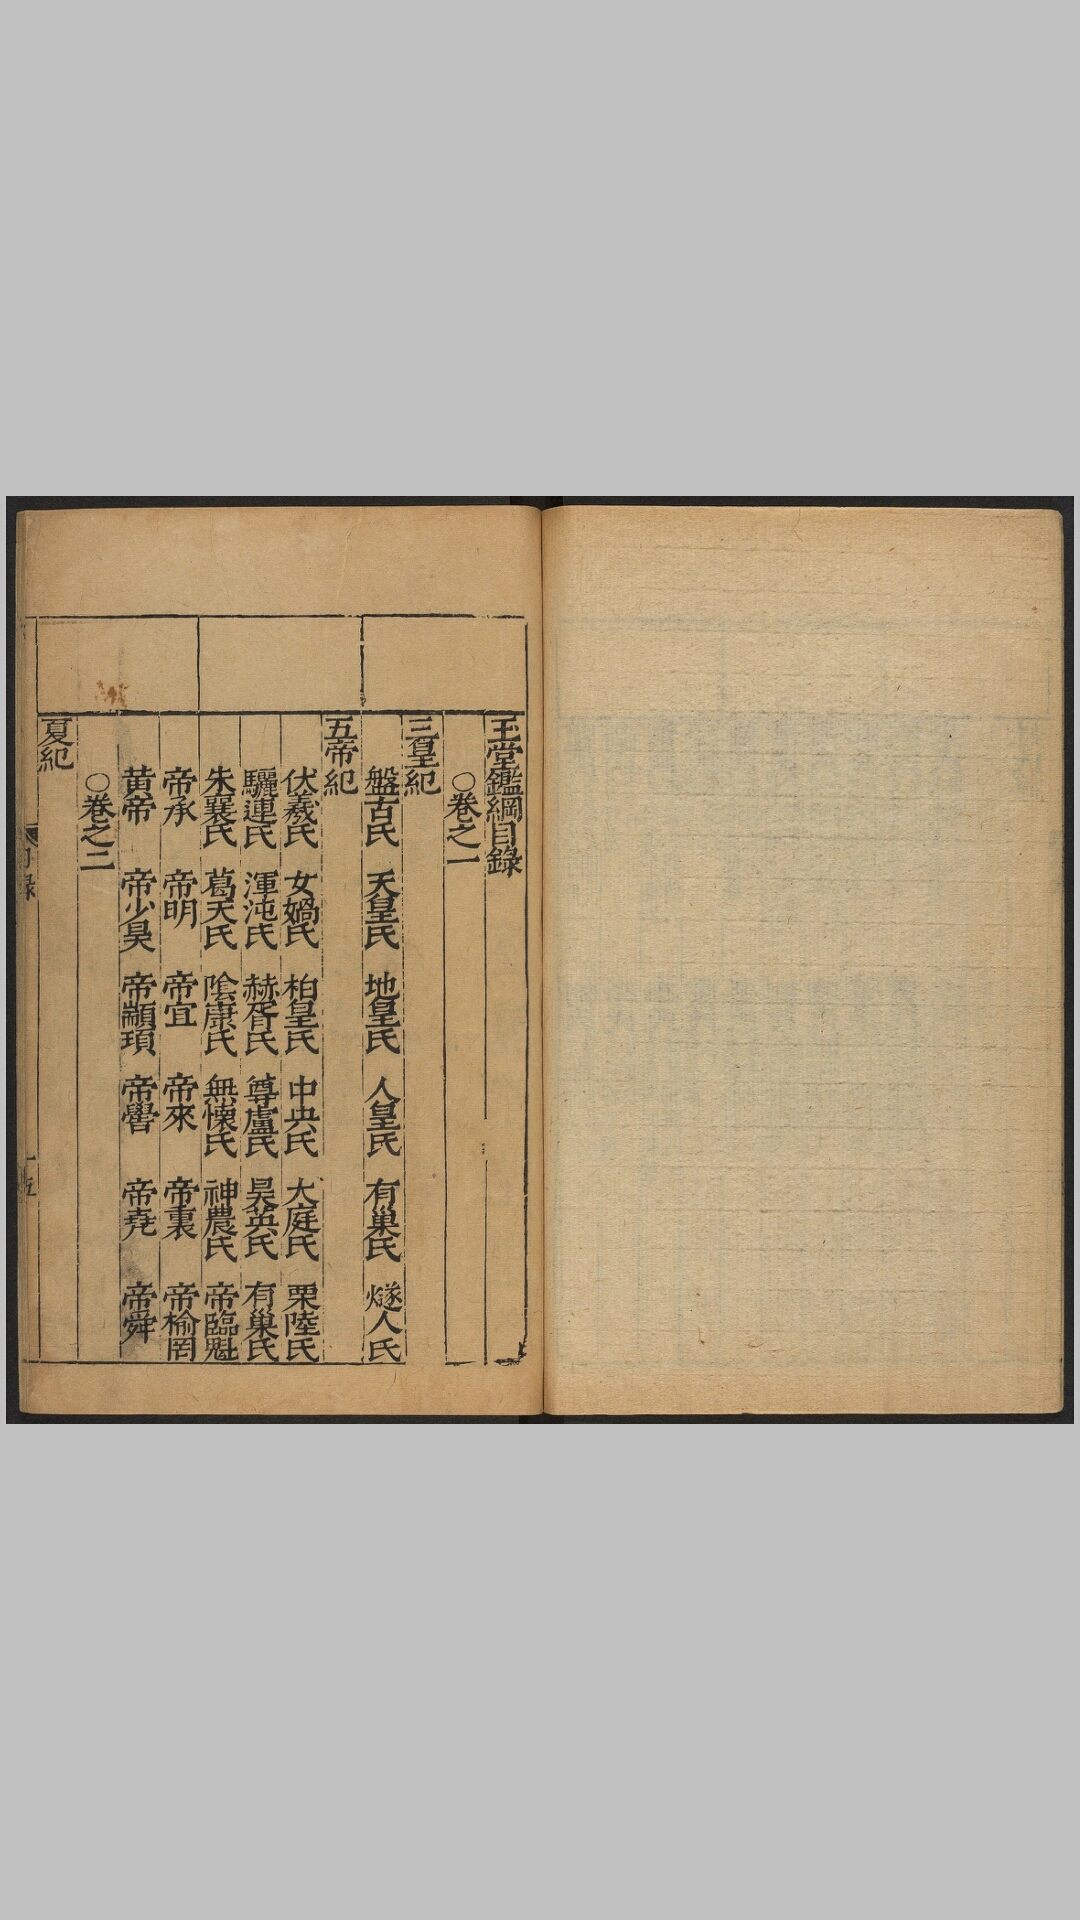 玉堂鑑綱目錄
○卷之一
三皇紀
盤古氏 天皇氏 地皇氏 人皇氏 有巢氏 燧人氏
五帝紀
伏羲氏 女媧氏 柏皇氏 中央氏 大庭氏 栗陸氏
驪連氏 渾沌氏 赫胥氏 尊盧氏 昊英氏 有巢氏
朱襄氏 葛天氏 陰康氏 無懷氏 神農氏 帝臨魁
帝承 帝明 帝宜 帝來 帝裏 帝榆罔
黄帝 帝少昊 帝顓頊 帝嚳 帝堯 帝舜
○卷之二
夏紀